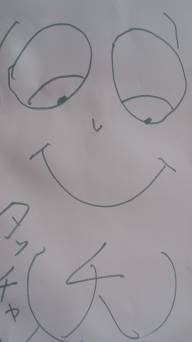 タッチャ